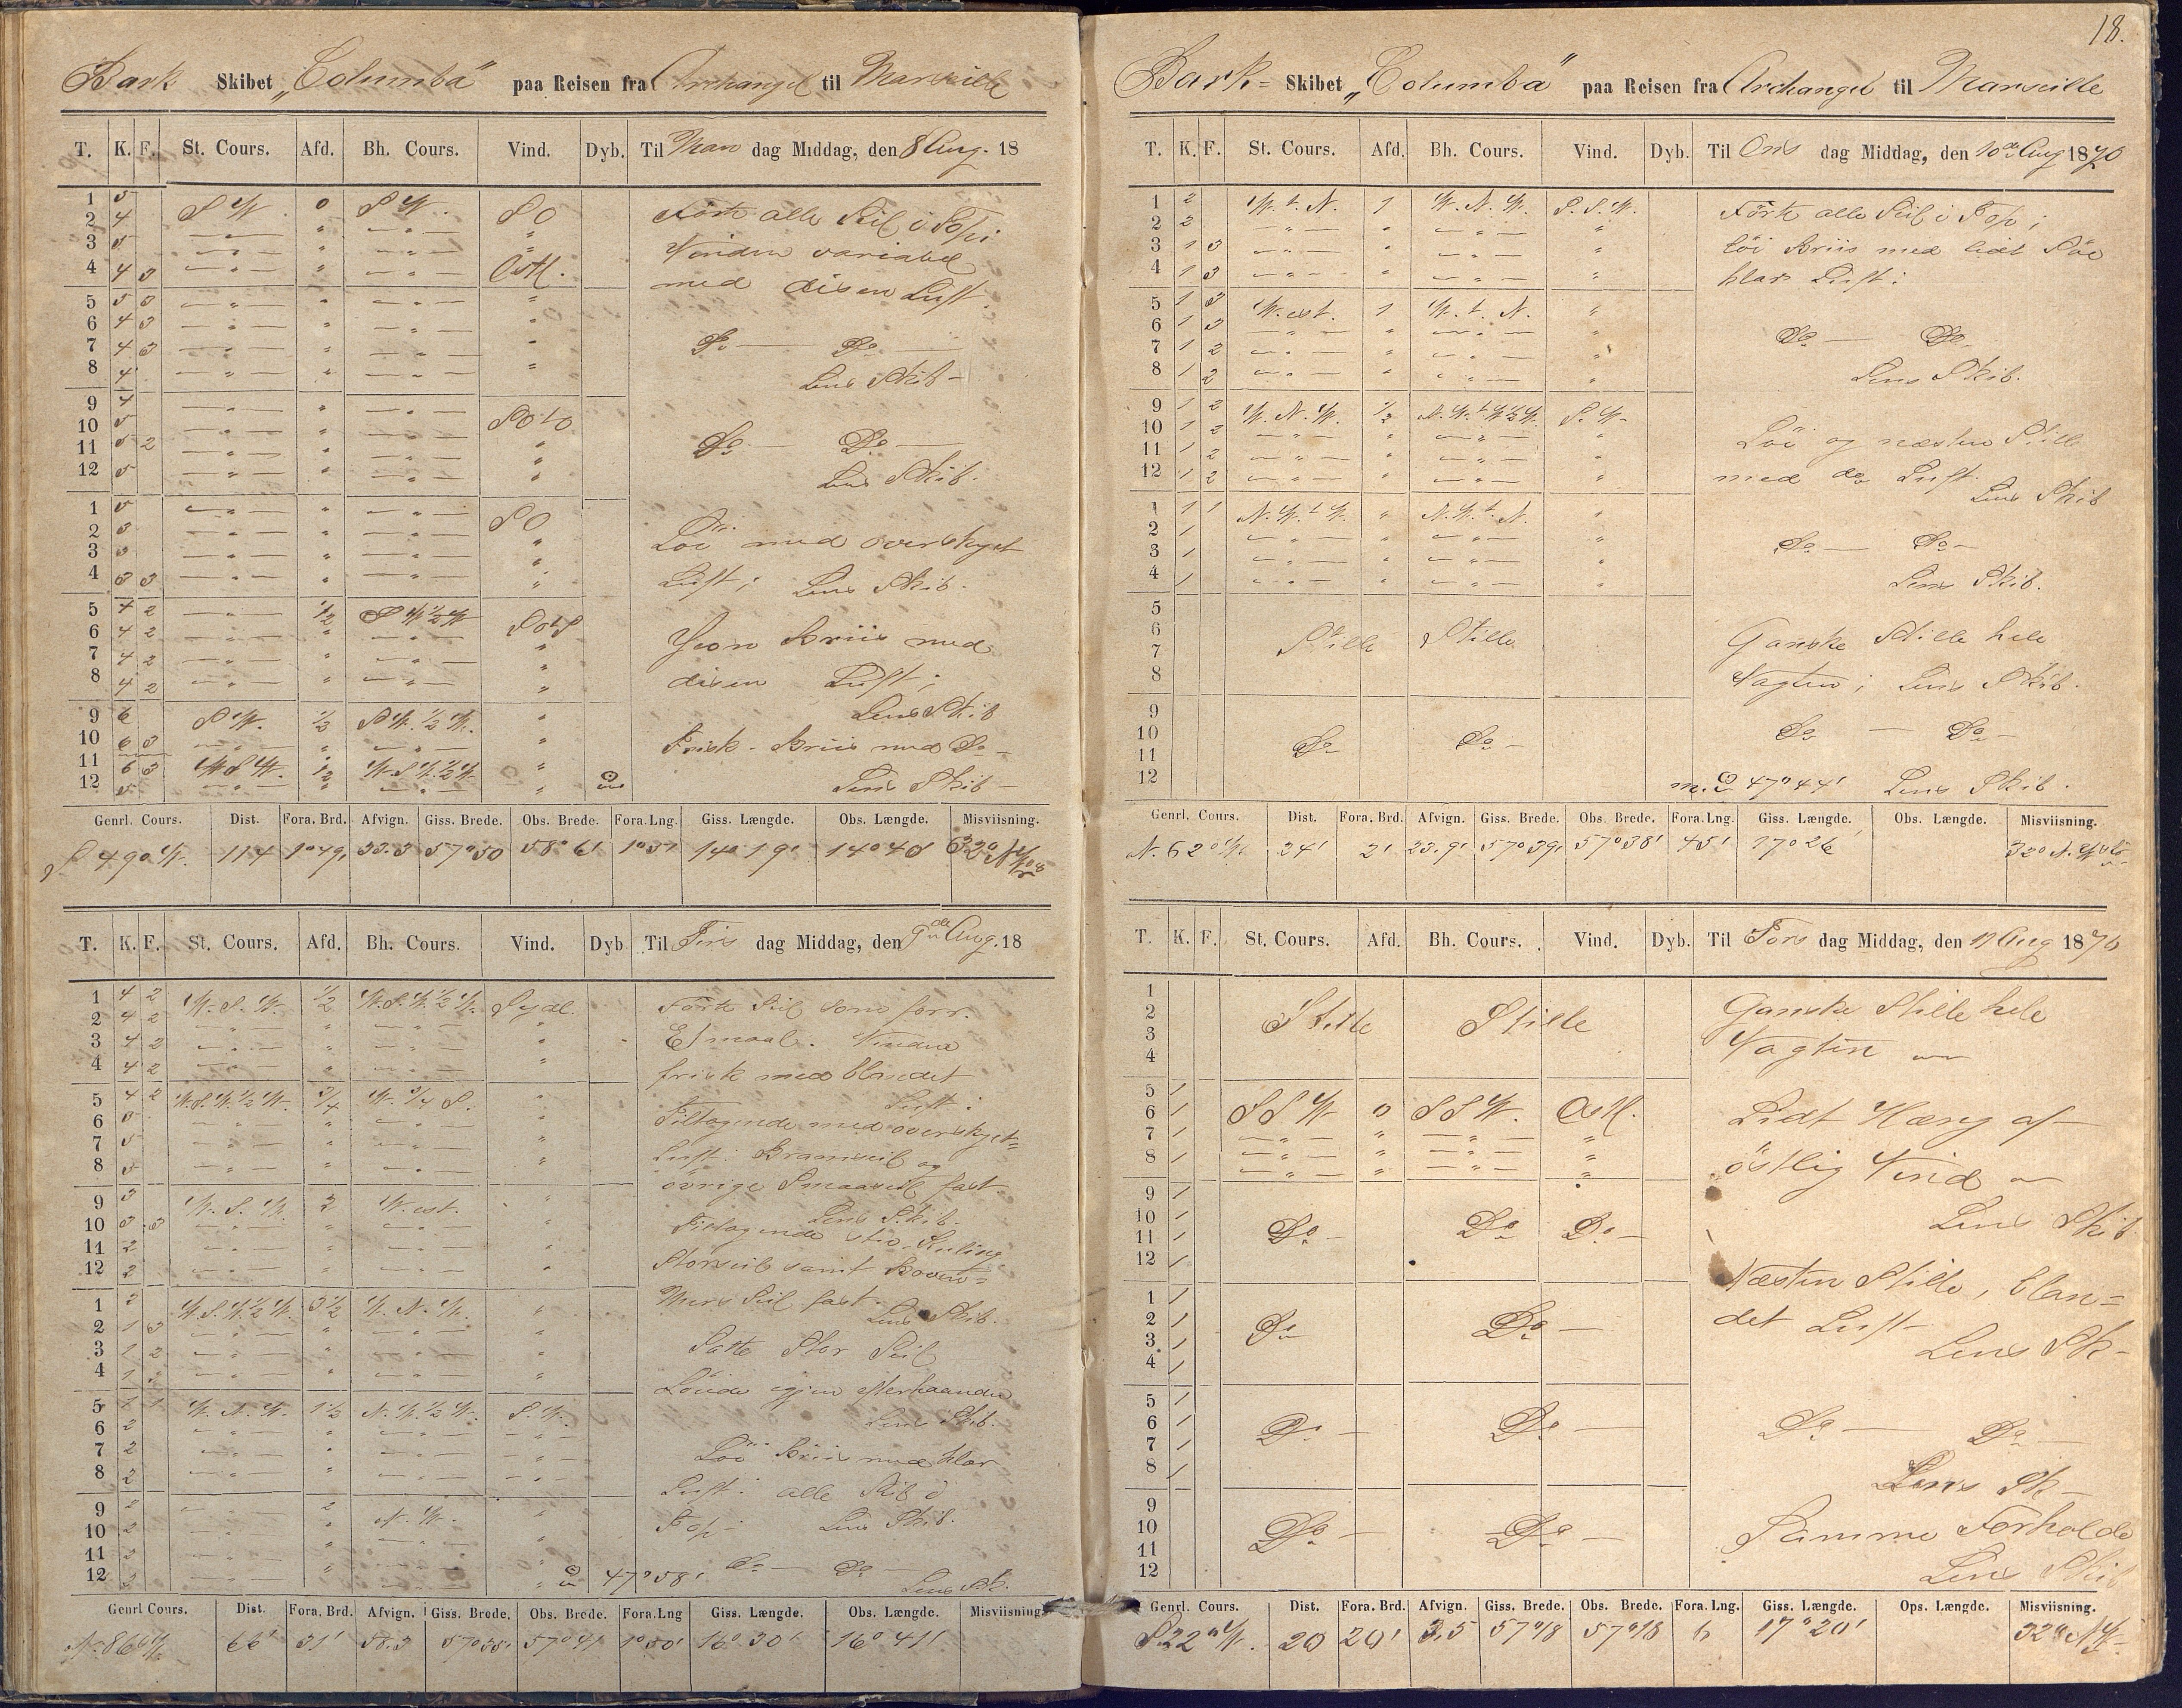 Bark Skibet „Columba" paa Reisen fra Archangel til Marseille
T. K. F. St. Cours. Afd. Bh. Cours. Vind. Dyb. Til Man dag Middag, den 8 Aug. 18
1 5 SW. 0 SW. SO
2 4
3 5
4 4 3 Østl.
Förte alle Seil i Top;
Vinden variabel
med disen Luft.
5 5 3
6 4 3
7 4 3
8 4
Do — Do —
Lens Skib —
9 4
10 5 SOtO
11 5 2
12 5
Do — Do —
Lens Skib.
1 5
2 3 SO
3 3
4 3 3
Löi med overskyet
Luft; Lens Skib.
5 4 2 1/2 SW 1/2 W SOtS
6 4 2
7 4 2
8 4 2
Jevn Briis med
disen Luft;
Lens Skib
9 6 SW. 1/2 SW. 1/2 W.
10 6 3
11 6 3 WSW. 1/2 WSW. 1/2 W
12 5
Frisk Briis med Do —
Lens Skib —
Genrl. Cours. Dist. Fora. Brd. Afvign. Giss. Brede. Obs. Brede. Fora. Lng. Giss. Længde. Obs. Længde. Misviisning.
S 49° W. 114 1°49' 33.3 57°50 58°6' 1°37 14°19' 14°48
T. K. F. St. Cours. Afd. Bh. Cours. Vind. Dyb Til Tirs dag Middag, den 9de Aug. 18
1 4 2 W. S. W. 1/2 W. S. W. 1/2 W. Sydl.
2 4 2
3 4 2
4 4 2
Förte Seil som forr.
Etmaal. Vinden
frisk med blandet
Luft:
5 4 2 W. S. W. 1/2 W. 3/4 W. 3/4 S.
6 5
7 5
8 5
Tiltagende med overskyet=
Luft: Bramseil og
övrige Smaaseil fast
Lens Skib.
9 3 W. S. W. 2 West.
10 3 3
11 2
12 2
Tiltagende stiv Kuling
Storseil samt Boven=
Mers Seil fast.
Lens Skib.
1 2 W. S. W. 1/2 W. 3 1/2 W. N. W.
2 1 3
3 1 2
4 1
Satte Stor Seil
Löiede igjen efterhaanden
Lens Skib.
5 1 1 W. N. W. 1 1/2 N. W. 1/2 W. S. W.
6 2
7 2
8 2
Löi Briis med klar
Luft: alle Seil i
Top — Lens Skib.
9 2 2 N. W.
10 2
11 2
12 2 47°58'
Do — Do —
Lens Sk.
Genrl Cours. Dist. Fora. Brd. Afvign. Giss. Brede. Obs. Brede. Fora. Lng Giss. Længde. Obs. Længde. Misviisning.
N. 86° W. 66' 31' 58.3 57°35' 57°41' 1°50' 16° 30' 16° 41'
18.
Bark= Skibet „Columba" paa Reisen fra Archangel til Marseille
T. K. F. St. Cours. Afd. Bh. Cours. Vind. Dyb. Til Ons dag Middag, den 10de Aug 1870
1 2 W. t. N. 1 W. N. W. S. S. W.
2 2
3 1 3
4 1 3
Förte alle Seil i Top;
löi Briis med lidt Söe
klar Luft:
5 1 3 West. 1 W. t. N.
6 1 3
7 1 2
8 1 2
Do — Do —
Lens Skib.
9 1 2 W. N. W. 1/2 N. W. t W 1/2 W. S. W.
10 1 2
11 1 2
12 1 2
Löi og næsten Stille
med do Luft.
Lens Skib
1 1 1 N. W. t W. N. W. t. N.
2 1
3 1
4 1
Do — Do —
Lens Skib.
5
6 Stille Stille
7
8
Ganske Stille hele
Vagten; Lens Skib.
9
10 Do Do —
11
12
Do — Do —
47°44' Lens Skib.
Genrl. Cours. Dist. Fora. Brd. Afvign. Giss. Brede. Obs. Brede. Fora. Lng. Giss. Længde. Obs. Længde. Misviisning.
N. 62° W. 24' 2' 23.9' 57°39' 57°38' 45' 17°26
T. K. F. St. Cours. Afd. Bh. Cours. Vind. Dyb. Til Tors dag Middag, den 11 Aug 1870
1
2 Stille Stille
3
4
Ganske Stille hele
Vagten
5 1
6 1 SSW 0 SSW. Østl.
7 1
8 1
Lidt Hæng af
östlig Vind
Lens Skib
9 1
10 1
11 1 Do — Do Do —
12 1
1 1
2 1 Do Do —
3 1
4 1
Næsten Stille, blan=
det Luft
Lens Sk —
5 1
6 1 Do — Do —
7 1
8 1
Do — Do —
Lens Sk —
9
10 Do — Do —
11
12
Samme Forholde
Lens Skib
Genrl. Cours. Dist. Fora. Brd. Afvign. Giss. Brede. Obs. Brede. Fora. Lng. Giss. Længde. Ops. Længde. Misviisning.
S 22° W. 20 20' 3.5 57°18 57°18 6 17°20' 32° NW.